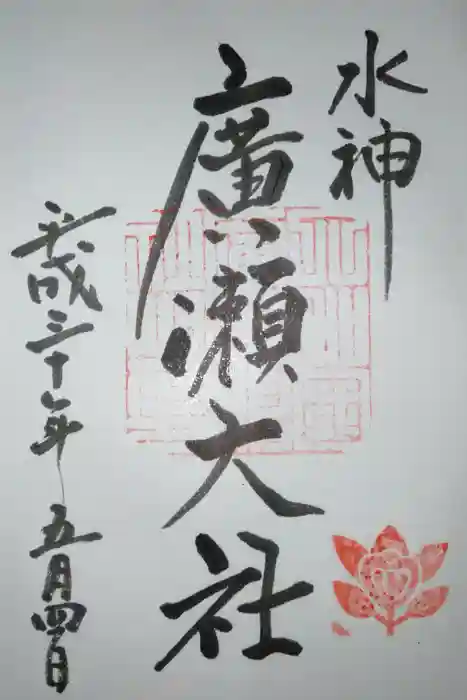 水神
廣瀬大社
平成三十年 五月四日